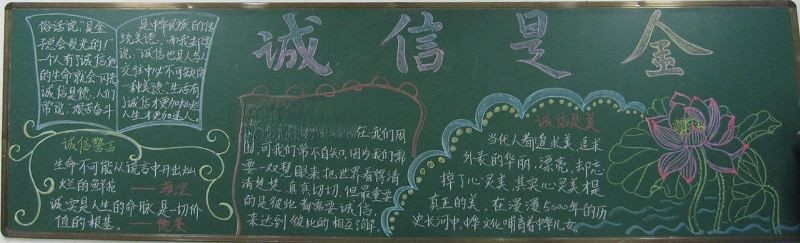 诚信是金
俗话说："是金
子总会发光的!"
一个人有了诚信他
的生命就会闪光
诚信是德,人们
常说,艰苦奋斗
是中华民族的传
统美德,而我却要
说,诚信也是人与人
交往中必不可缺的
一种美德,生活有
了诚信才更加灿烂
人生才更加迷人
诚信警言
生命不可能从谎言中开出灿
烂的鲜花 ——海涅
诚实是人生的命脉,是一切价
值的根基。——德莱
在我们周
围,可我们常不自知,因为我们需
要一双慧眼来把世界看得清
清楚楚,真真切切,但最重要
的是彼此都需要诚信,
来达到彼此的相互谅解
诚信是美
当代人都追求美,追求
外表的华丽,漂亮,却忘
掉了心灵美,其实心灵美根
真正的美,在漫漫5000年的历
史长河中,中华文化哺育着中华儿女。